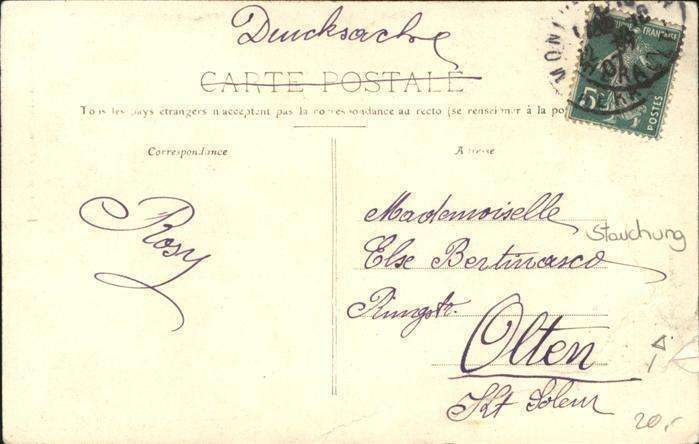 Drucksache
CARTE POSTALE
Tous les pays étrangers n'acceptent pas la correspondance au recto (se renseigner à la po
Correspondance
Adresse
Rosy
Mademoiselle
Else Bertinasco
Ringstr.
Olten
Kt Soleur
Stauchung
20,-
FRANÇAISE
POSTES
5c